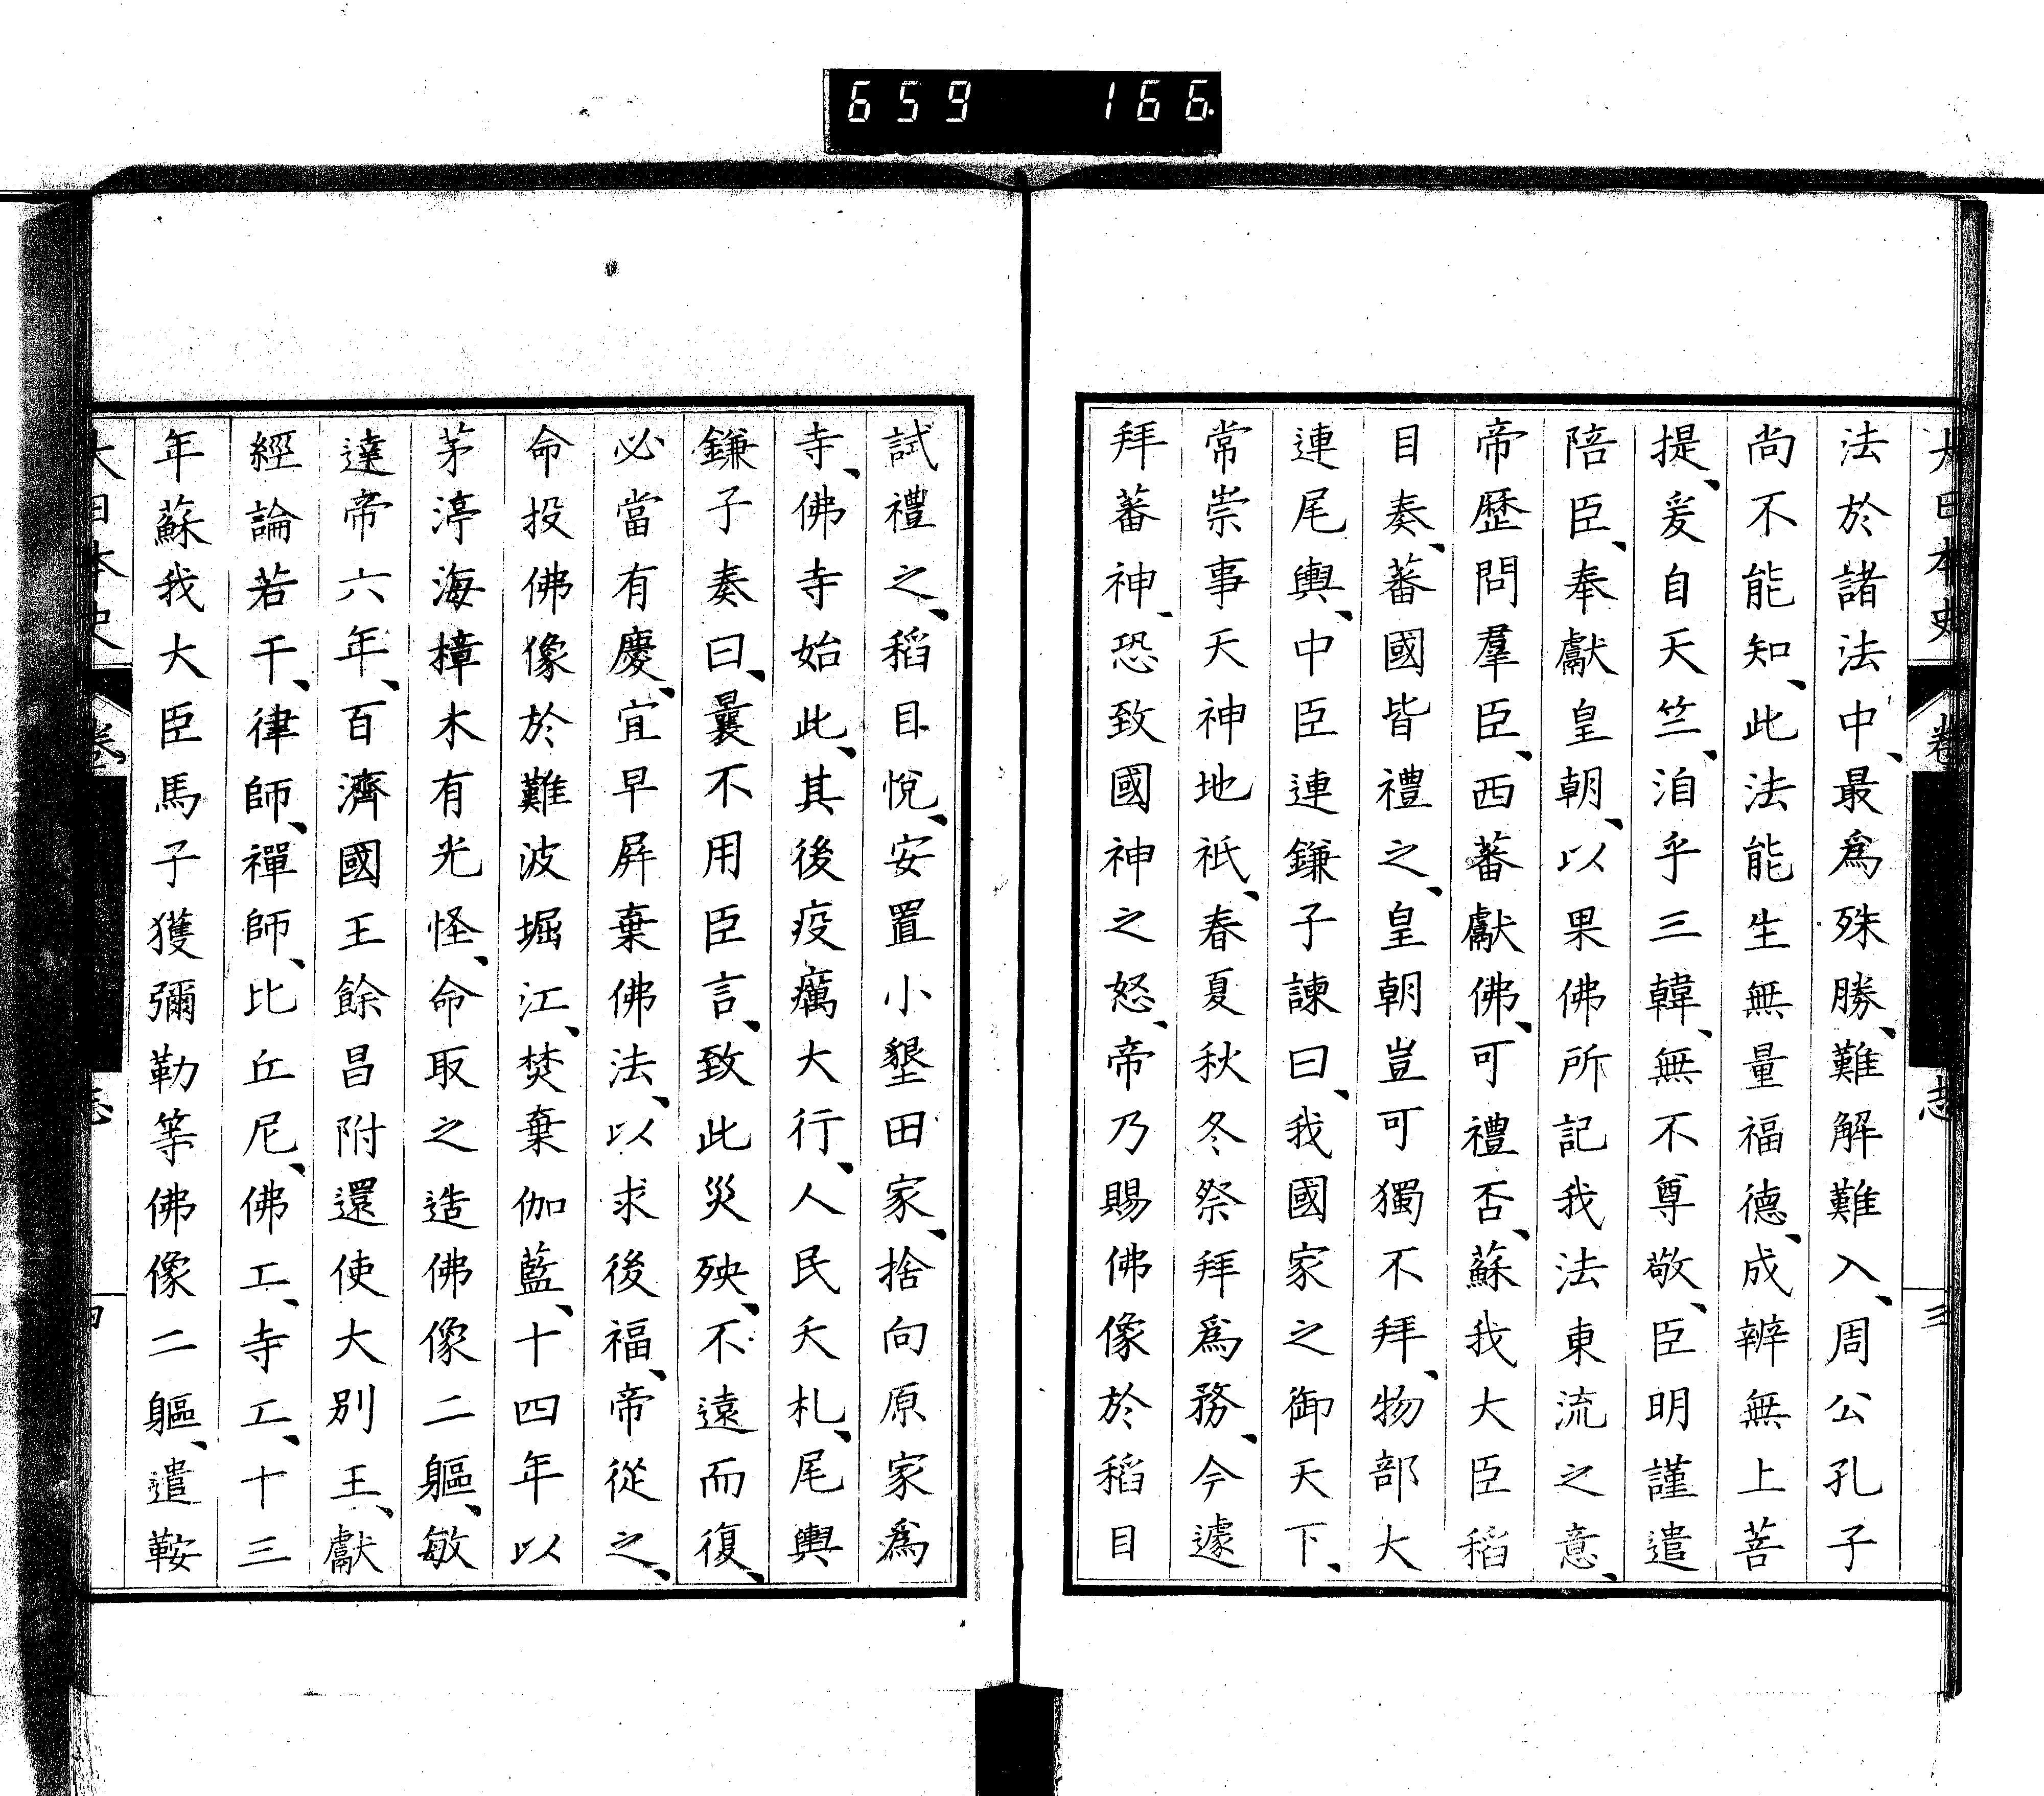 659 166
大日本史 卷 志 三
法於諸法中、最爲殊勝、難解難入、周公孔子
尚不能知、此法能生無量福德、成辨無上菩
提、爰自天竺、洎乎三韓、無不尊敬、臣明謹遣
陪臣、奉獻皇朝、以果佛所記我法東流之意、
帝歷問羣臣、西蕃獻佛、可禮否、蘇我大臣稻
目奏、蕃國皆禮之、皇朝豈可獨不拜、物部大
連尾輿、中臣連鎌子諫曰、我國家之御天下、
常崇事天神地祇、春夏秋冬祭拜爲務、今遽
拜蕃神、恐致國神之怒、帝乃賜佛像於稻目
試禮之、稻目悅、安置小墾田家、捨向原家爲
寺、佛寺始此、其後疫癘大行、人民夭札、尾輿
鎌子奏曰、曩不用臣言、致此災殃、不遠而復、
必當有慶、宜早屏棄佛法、以求後福、帝從之、
命投佛像於難波堀江、焚棄伽藍、十四年以
茅渟海樟木有光怪、命取之造佛像二軀、敏
達帝六年、百濟國王餘昌附還使大別王、獻
經論若干、律師、禪師、比丘尼、佛工、寺工、十三
年蘇我大臣馬子獲彌勒等佛像二軀、遣鞍
大日本史 卷 志 四